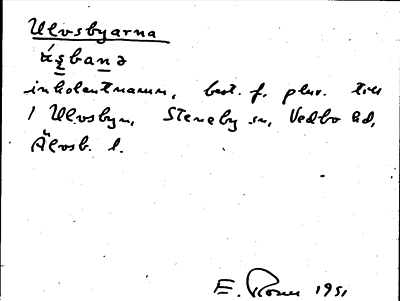 Ulvsbyarna
ɯ́s̱baṉə
inkolentnamn, best. f. plur. till
/ Ulvsbyn, Steneby sn, Vedbo hd,
Älvsb. l.
E. Rosen 1951